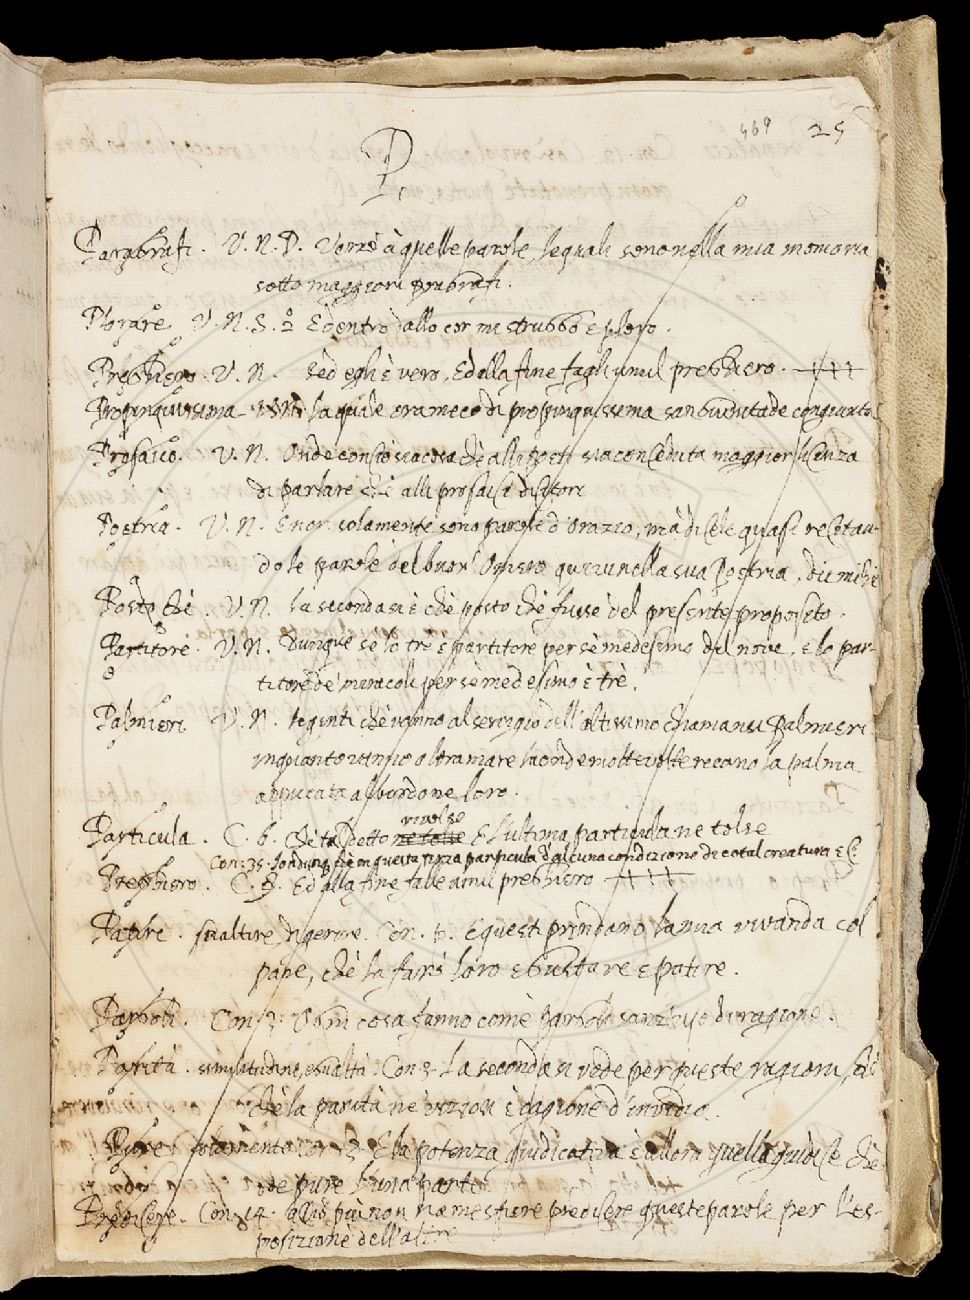 469 25
P.
Paragrafi. V. N. P. Verrò à quelle parole, le quali sono nella mia memoria
sotto maggiori paragrafi.
Plorare V. N. S. 2 E dentro dallo cor mi struggo e ploro.
Preghiero. V. N. s'ed egli è vero, Ed alla fine fagli umil preghiero.
Propinquissima. V. N. la quale era meco di propinquissima sanguinità de congiunta
Prosaico. V. N. Onde conciosiacosachè alli poeti sia conceduta maggior licenza
di parlare chè alli prosaici dittori
Poetria. V. N. E non solamente sono parole d'Orazio, mà dicele quasi recitan-
do le parole del buon Omero quivi nella sua Poetria, dic mihi
Posto chè. V. N. la seconda si è chè posto chè fusse del presente proposito.
Partitore. V. N. Dunque se lo tre è partitore per sè medesimo del nove, e lo par-
titore de' miracoli per sè medesimo è trè.
Palmieri V. N. le genti chè vanno al servigio dell'altissimo chiamansi Palmieri
inquanto vanno oltramare laonde molte volte recano la palma
Particula. C. 6. chè tà detto ne tolse rivolse E l'ultima particula ne tolse
Con: 35. in questa prima particula d'alcuna condizione di cotal creatura &c.
Preghiero. C. 9. Ed alla fine falle umil preghiero
Patire. smaltire, digerire. Con. 6. E questi prendano la mia vivanda col
pane, chè la farò loro e gustare e patire.
Pargoli. Con: 3: Ogni cosa fanno come pargoli sanz'uso di ragione.
Parità. similitudine, egualtà Con 3. La seconda si vede per queste ragioni, che
chè la parità ne' viziosi è cagione d'invidia.
Pure solamente E la potenza giudicativa è allora quella giudice chè
ode pure l'una parte
Predicere. Con: 14. acciò più non n'è mestiere predicere queste parole per l'es-
posizione dell'altre